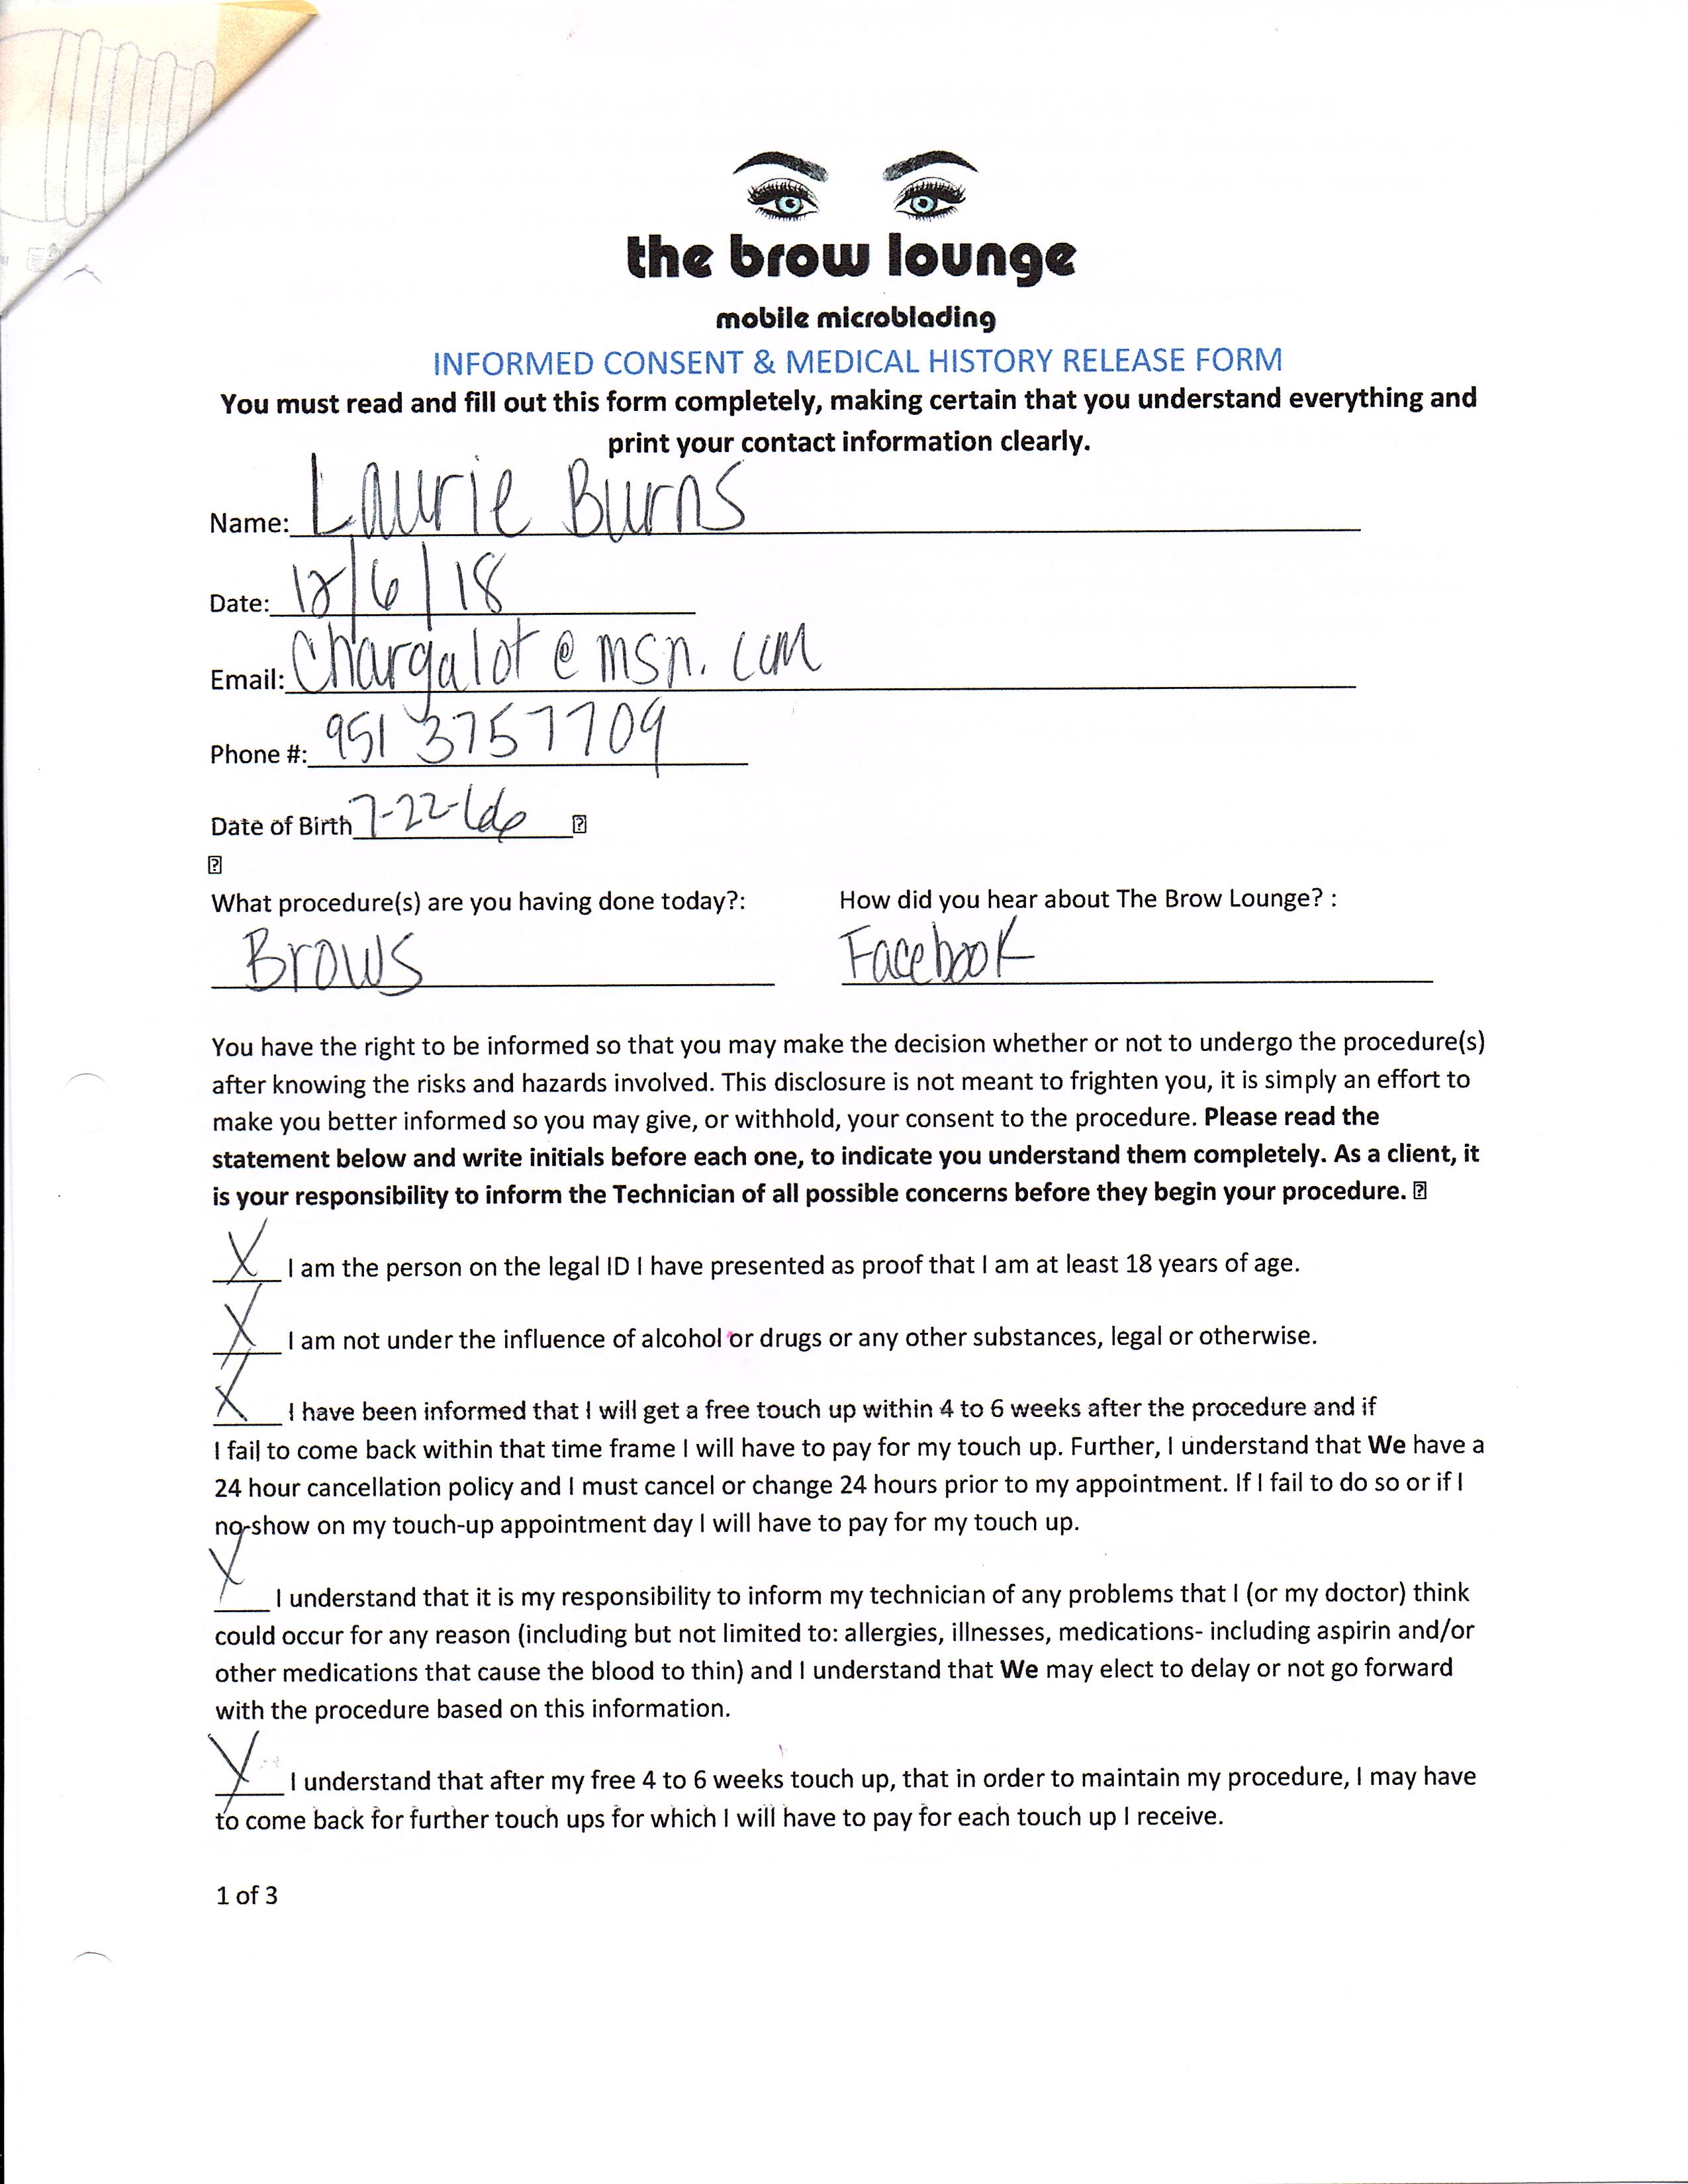 the brow lounge
mobile microblading
INFORMED CONSENT & MEDICAL HISTORY RELEASE FORM
You must read and fill out this form completely, making certain that you understand everything and
print your contact information clearly.
Name: Laurie Burns
Date: 12/6/18
Email: Chargalot@msn.com
Phone #: 951 3757709
Date of Birth 7-22-66
What procedure(s) are you having done today?: How did you hear about The Brow Lounge? :
Brows Facebook
You have the right to be informed so that you may make the decision whether or not to undergo the procedure(s)
after knowing the risks and hazards involved. This disclosure is not meant to frighten you, it is simply an effort to
make you better informed so you may give, or withhold, your consent to the procedure. Please read the
statement below and write initials before each one, to indicate you understand them completely. As a client, it
is your responsibility to inform the Technician of all possible concerns before they begin your procedure.
X I am the person on the legal ID I have presented as proof that I am at least 18 years of age.
X I am not under the influence of alcohol or drugs or any other substances, legal or otherwise.
X I have been informed that I will get a free touch up within 4 to 6 weeks after the procedure and if
I fail to come back within that time frame I will have to pay for my touch up. Further, I understand that We have a
24 hour cancellation policy and I must cancel or change 24 hours prior to my appointment. If I fail to do so or if I
no-show on my touch-up appointment day I will have to pay for my touch up.
X I understand that it is my responsibility to inform my technician of any problems that I (or my doctor) think
could occur for any reason (including but not limited to: allergies, illnesses, medications- including aspirin and/or
other medications that cause the blood to thin) and I understand that We may elect to delay or not go forward
with the procedure based on this information.
X I understand that after my free 4 to 6 weeks touch up, that in order to maintain my procedure, I may have
to come back for further touch ups for which I will have to pay for each touch up I receive.
1 of 3